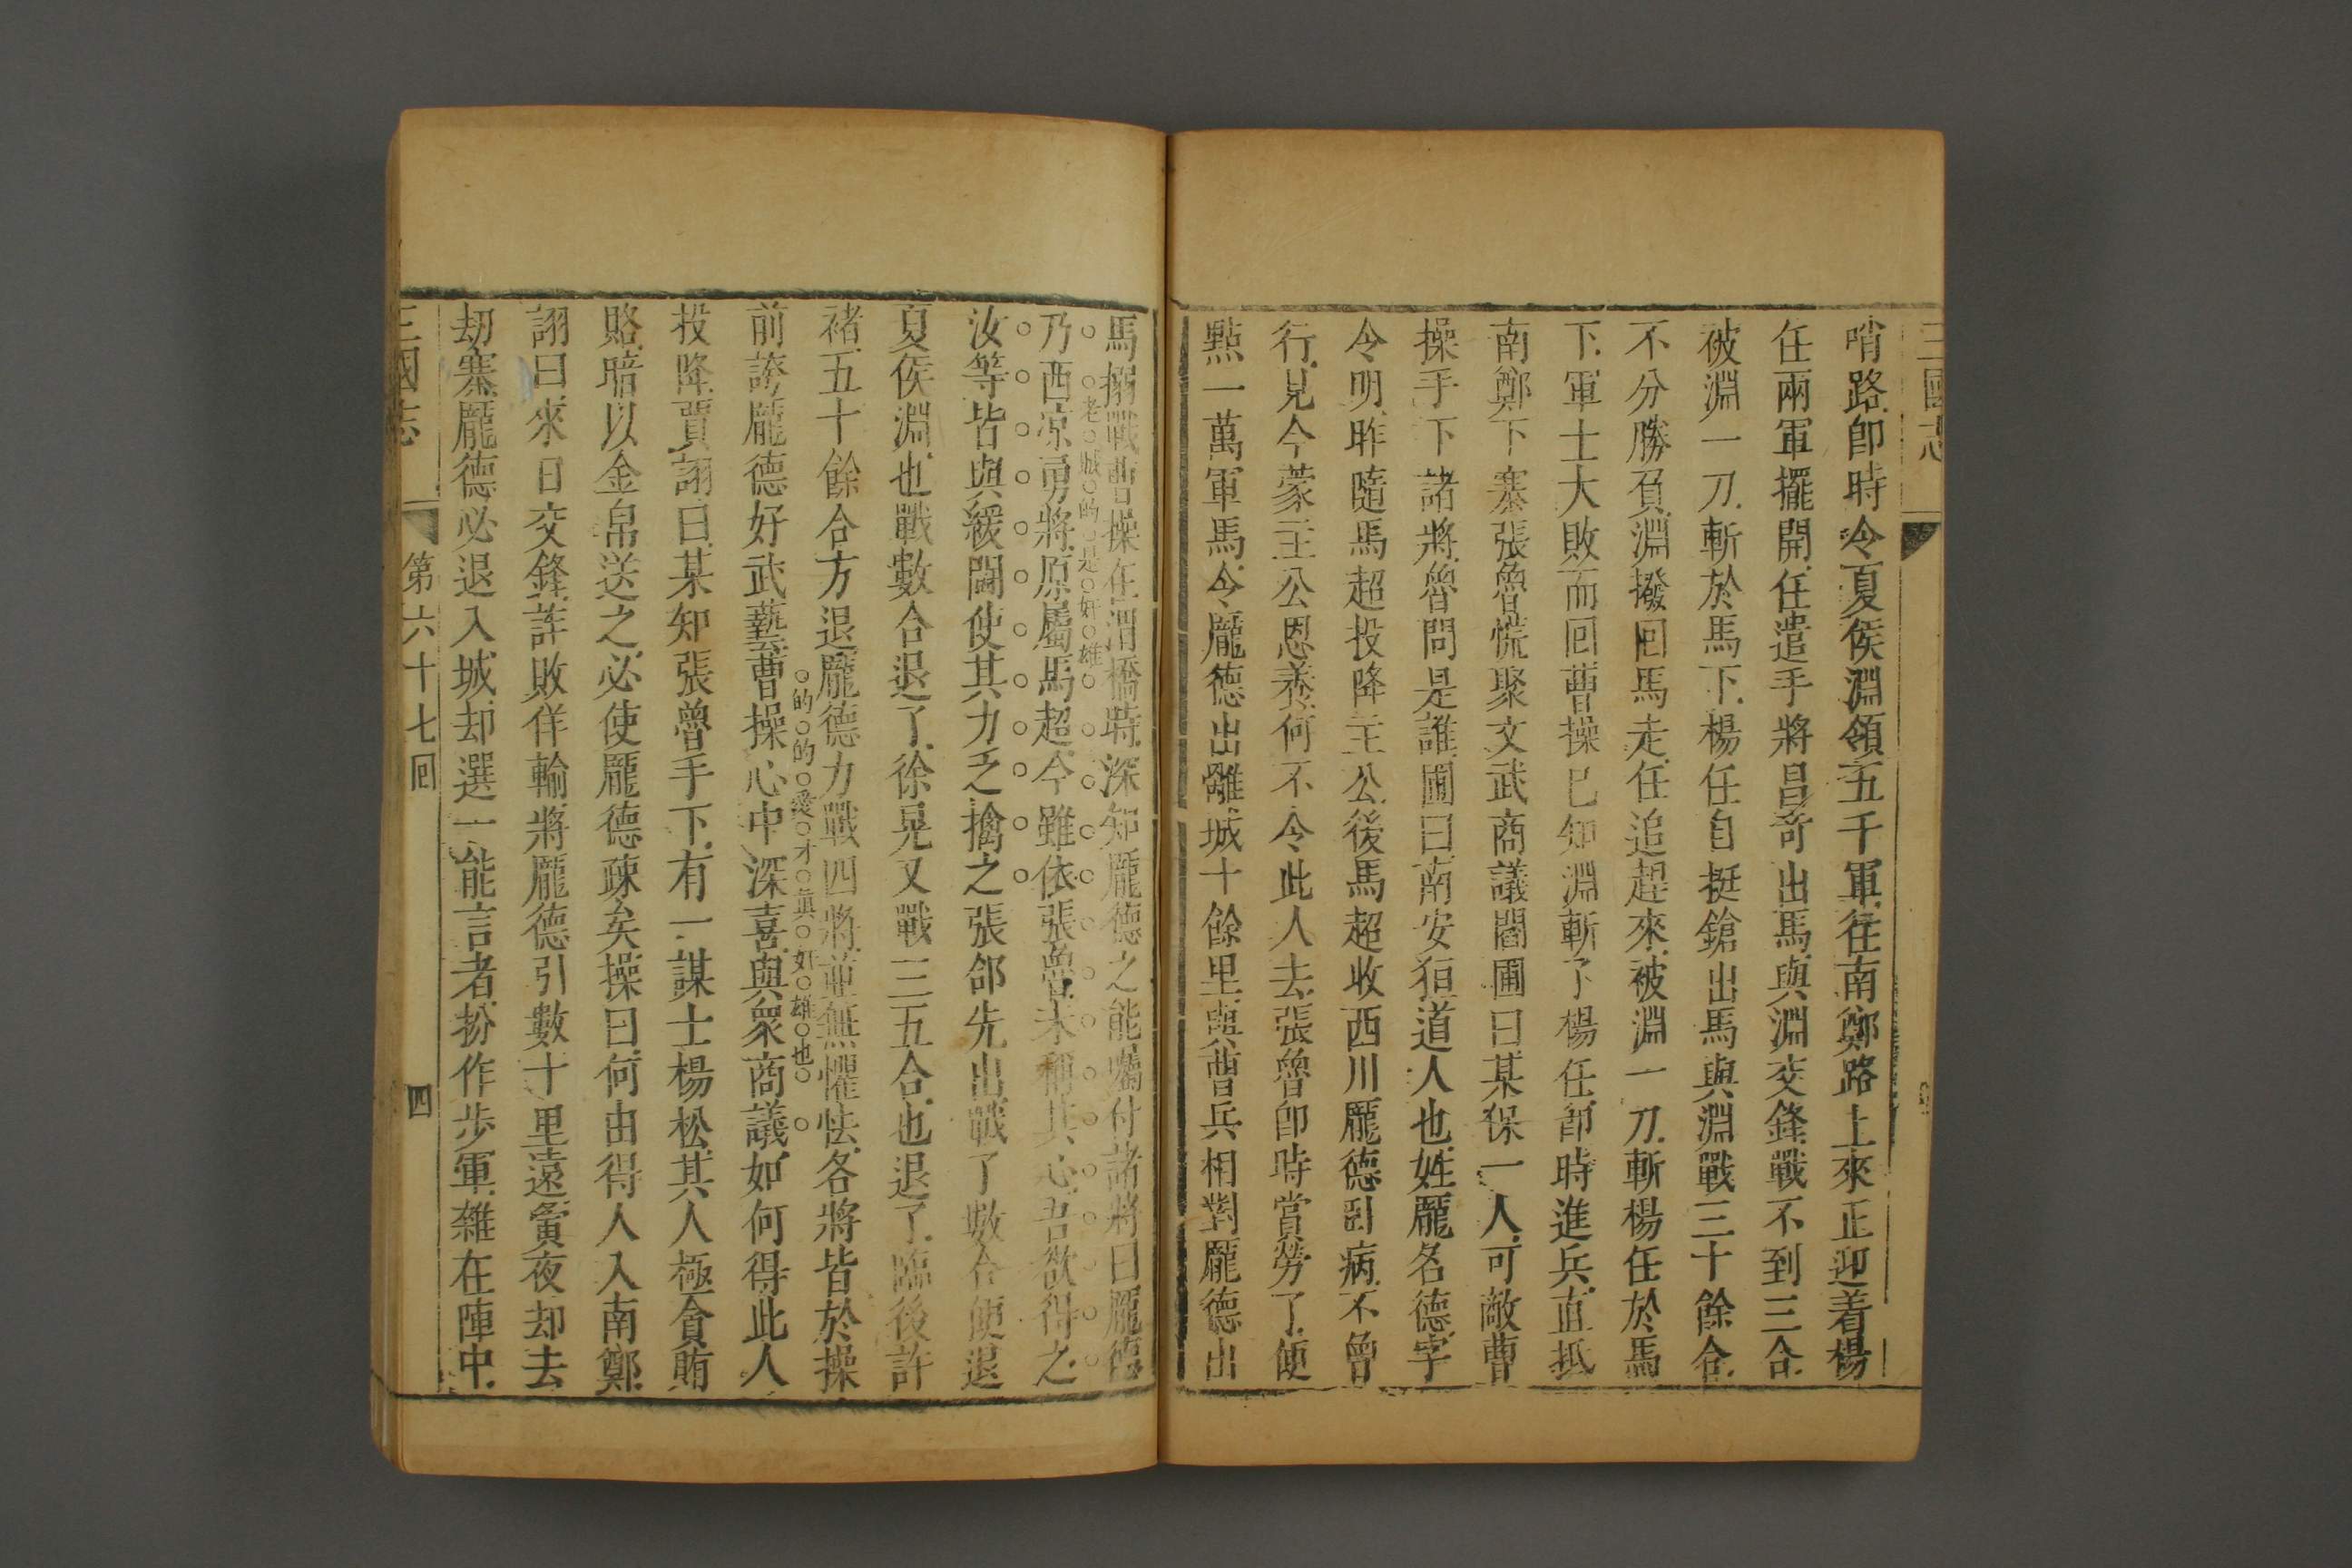 三國志
哨路卽時令夏侯淵領五千軍往南鄭路上來正迎着楊
任兩軍擺開任遣手將昌奇出馬與淵交鋒戰不到三合
被淵一刀斬於馬下楊任自挺鎗出馬與淵戰三十餘合
不分勝負淵撥囘馬走任追趕來被淵一刀斬楊任於馬
下軍士大敗而囘曹操已知淵斬了楊任卽時進兵直抵
南鄭下寨張魯慌聚文武商議閻圃曰某保一人可敵曹
操手下諸將魯問是誰圃曰南安狟道人也姓龐名德字
令明昨隨馬超投降主公後馬超收西川龐德臥病不曾
行見今蒙主公恩養何不令此人去張魯卽時賞勞了便
點一萬軍馬令龐德出離城十餘里與曹兵相對龐德出
馬搦戰曹操在渭橋時深知龐德之能囑付諸將曰龐德
老賊的是奸雄
乃西凉勇將原屬馬超今雖依張魯未稱其心吾欲得之
汝等皆與緩鬪使其力乏擒之張郃先出戰了數合便退
夏侯淵也戰數合退了徐晃又戰三五合也退了臨後許
褚五十餘合方退龐德力戰四將並無懼怯各將皆於操
的的愛才眞奸雄也
前誇龐德好武藝曹操心中深喜與衆商議如何得此人
投降賈詡曰某知張魯手下有一謀士楊松其人極貪賄
賂暗以金帛送之必使龐德疎矣操曰何由得人入南鄭
詡曰來日交鋒詐敗佯輸將龐德引數十里遠黃夜却去
劫寨龐德必退入城却選一能言者扮作步軍雜在陣中
三國志 第六十七囘 四